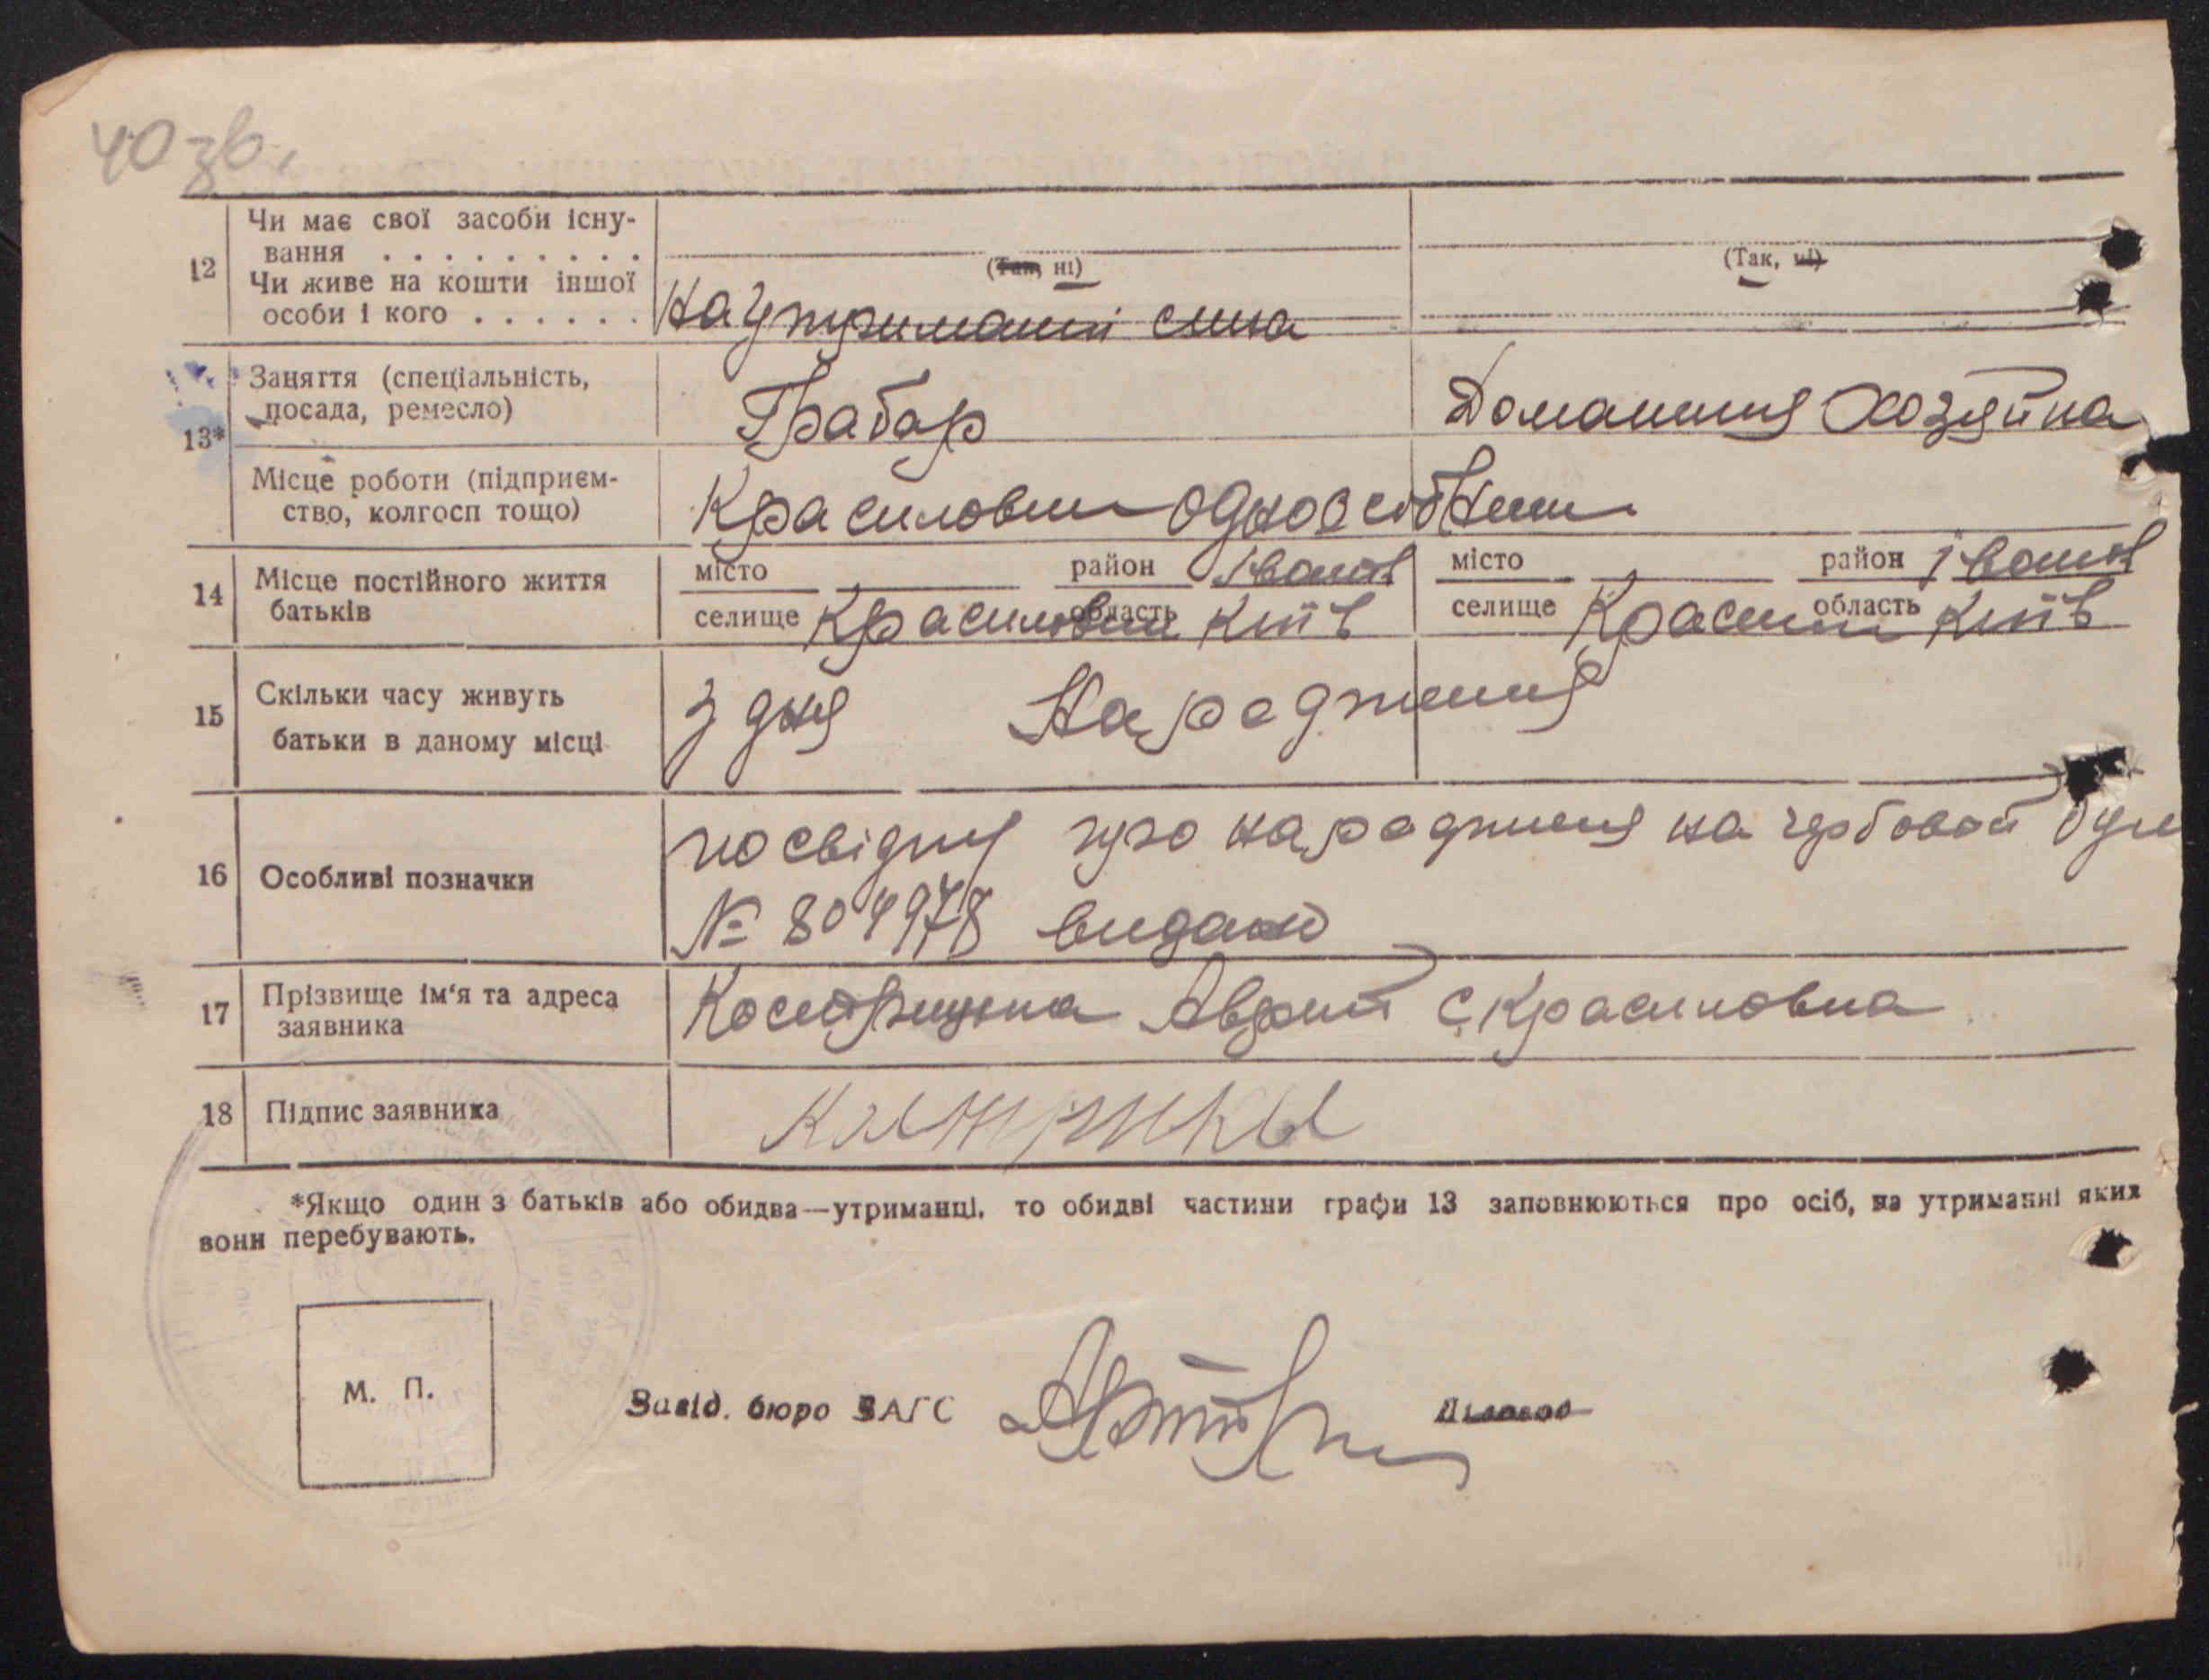 40 зв.
12 Чи має свої засоби існу-
вання . . . . . . . . .
Чи живе на кошти іншої
особи і кого . . . . . .
(Так, ні)
На утриманні сина
(Так, ні)
13* Заняття (спеціальність,
посада, ремесло)
Грабар
Домашня Хозяйка
Місце роботи (підприєм-
ство, колгосп тощо)
14 Місце постійного життя
батьків
місто район Іванк
селище Красиловка область Київ
місто район Іванк
селище область Київ
15 Скільки часу живуть
батьки в даному місці
з дня Народження
16 Особливі позначки
про на гербовой
№ 804978 видано
17 Прізвище ім'я та адреса
заявника
с Красиловка
18 Підпис заявника
*Якщо один з батьків або обидва—утриманці, то обидві частини графи 13 заповнюються про осіб, на утриманні яких
вони перебувають.
М. П.
Завід. бюро ЗАГС